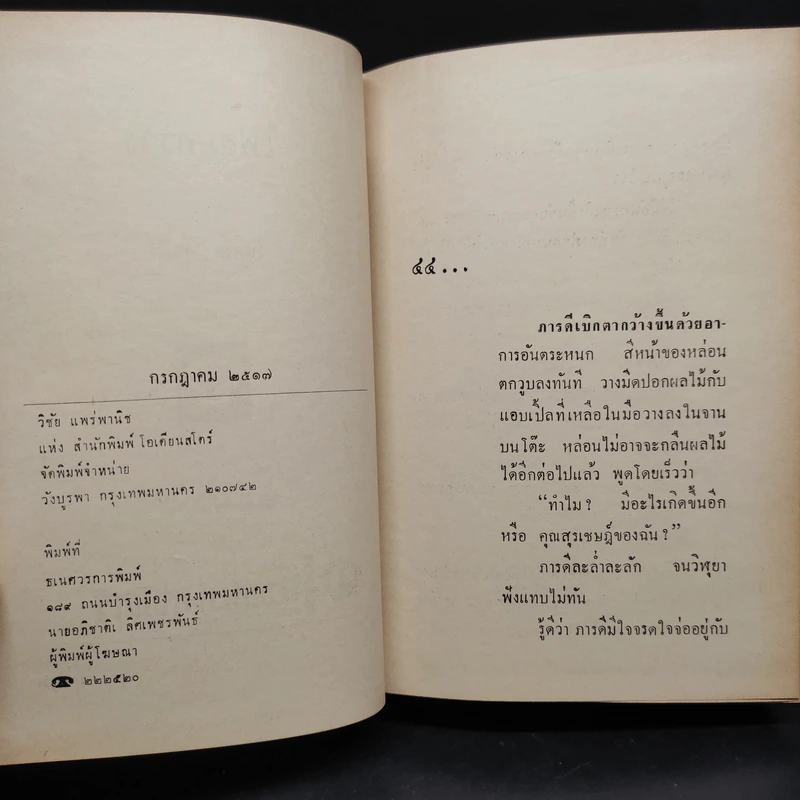 กรกฎาคม ๒๕๑๗
วิชัย แพร่พานิช
แห่ง สำนักพิมพ์ โอเดียนสโตร์
จัดพิมพ์จำหน่าย
วังบูรพา กรุงเทพมหานคร ๒๑๐๗๔๒
พิมพ์ที่
ธเนศวรการพิมพ์
๑๘๙ ถนนบำรุงเมือง กรุงเทพมหานคร
นายอภิชาติเ ลิศเพชรพันธ์
ผู้พิมพ์ผู้โฆษณา
๒๒๒๕๒๐
๔๔...
ภารดีเบิกตากว้างขึ้นด้วยอา-
การอันตระหนก สีหน้าของหล่อน
ตกวูบลงทันที วางมีดปอกผลไม้กับ
แอบเปิ้ลที่เหลือในมือวางลงในจาน
บนโต๊ะ หล่อนไม่อาจจะกลืนผลไม้
ได้อีกต่อไปแล้ว พูดโดยเร็วว่า
“ทำไม? มีอะไรเกิดขึ้นอีก
หรือ คุณสุรเชษฎ์ของฉัน?”
ภารดีละล่ำละลัก จนวิฬุยา
ฟังแทบไม่ทัน
รู้ดีว่า ภารดีมีใจจรดใจจ่ออยู่กับ